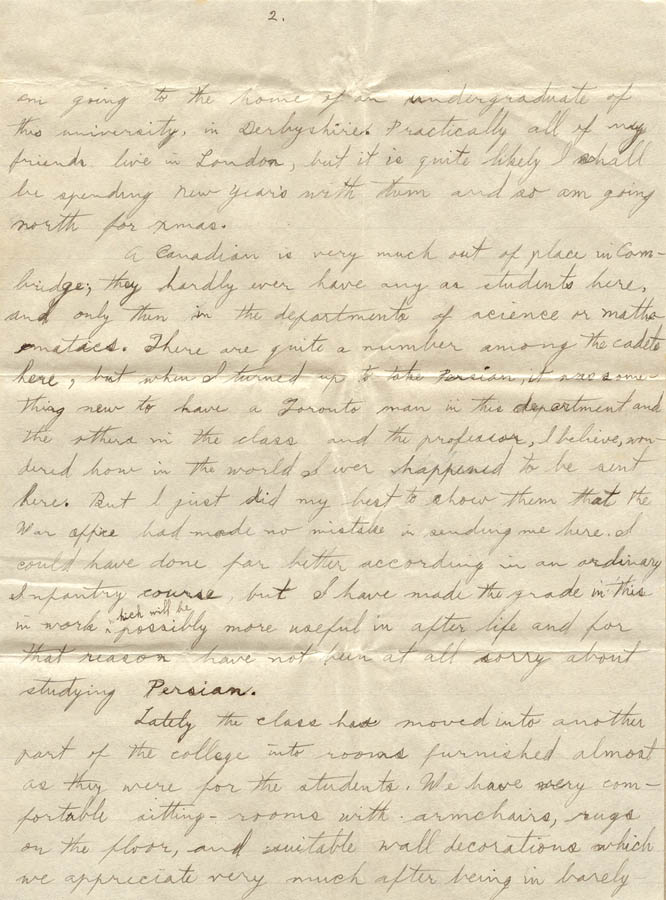 2.
am going to the home of an undergraduate of
this university, in Derbyshire. Practically all of my
friends live in London, but it is quite likely I shall
be spending New Years with them and so am going
north for xmas.
A Canadian is very much out of place in Cam-
bridge; they hardly ever have any as students here,
and only then in the departments of science or math-
ematacs. There are quite a number among the cadets
here, but when I turned up to take Persian, it was some-
thing new to have a Toronto man in this department and
the others in the class and the professor, I believe, won-
dered how in the world I ever happened to be sent
here. But I just did my best to show them that the
War office had made no mistake in sending me here. I
could have done far better according in an ordinary
Infantry course, but I have made the grade in this
in work which will be possibly more useful in after life and for
that reason have not been at all sorry about
studying Persian.
Lately the class has moved into another
part of the college into rooms furnished almost
as they were for the students. We have very com-
fortable sitting-rooms with armchairs, rugs
on the floor, and suitable wall decorations which
we appreciate very much after being in barely-